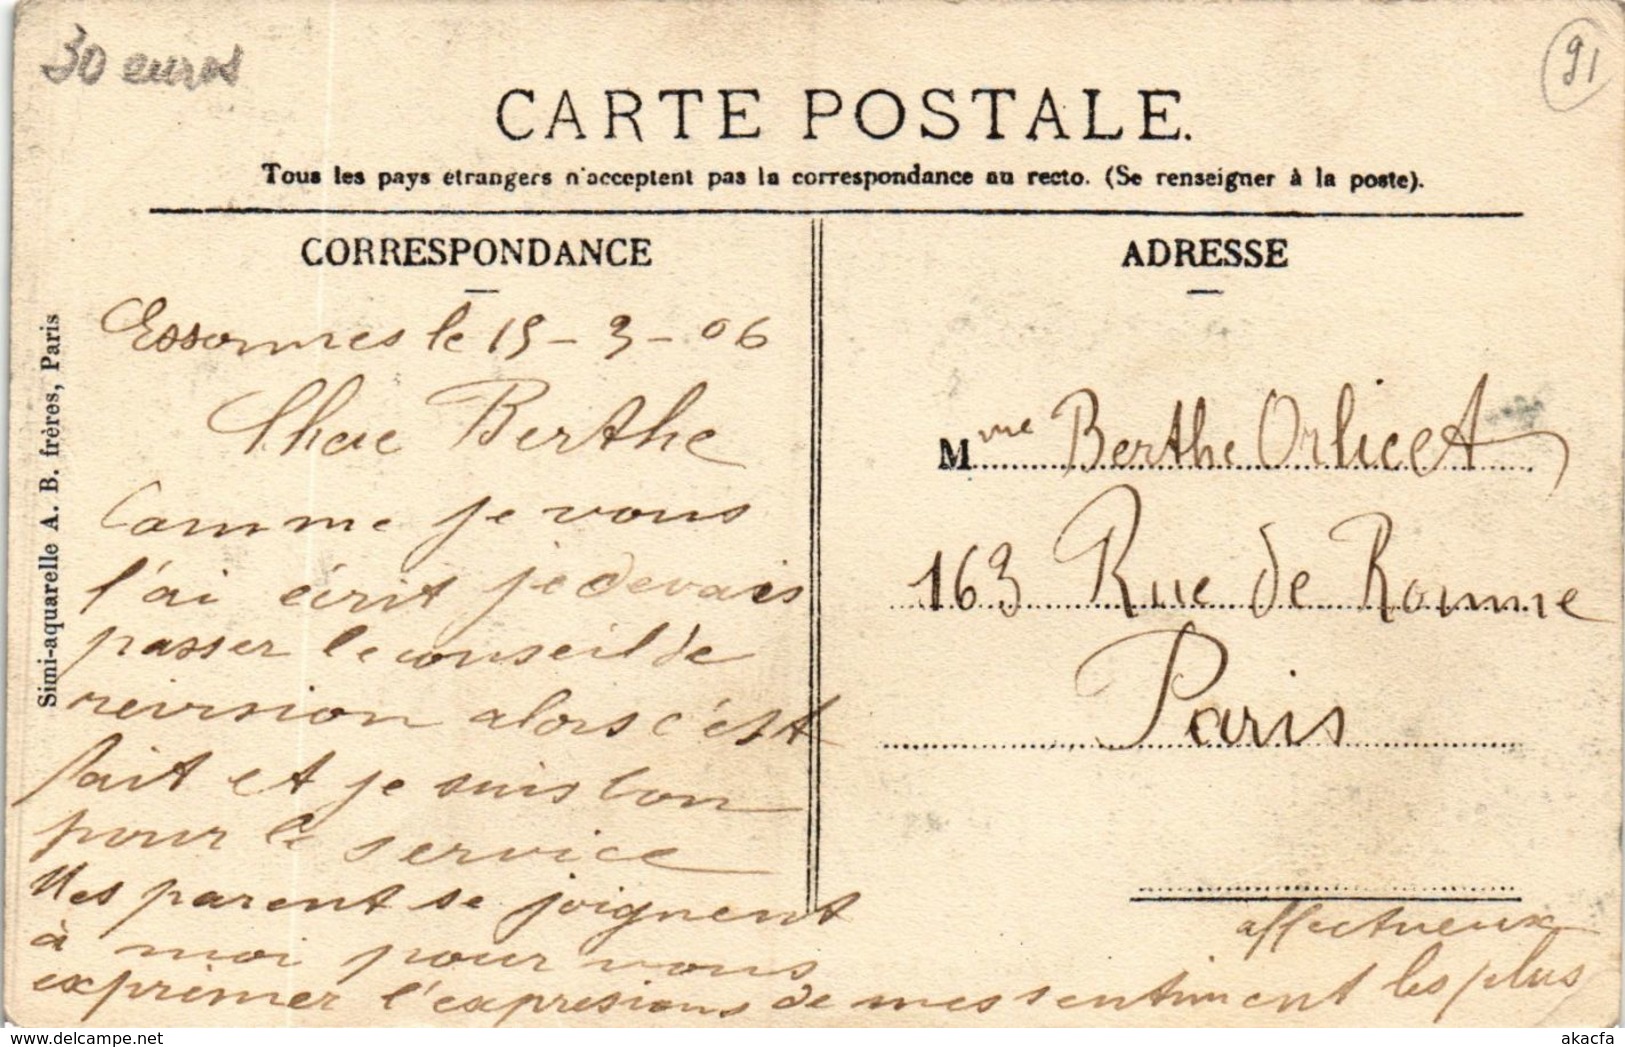 30 euros
91
CARTE POSTALE.
Tous les pays étrangers n'acceptent pas la correspondance au recto. (Se renseigner à la poste).
CORRESPONDANCE
ADRESSE
Simi-aquarelle A. B. frères, Paris
Essonnes le 15-3-06
Chere Berthe
Comme je vous
l'ai écrit je devais
passer le conseil de
revision alors c'est
fait et je suis bon
pour le service
Mes parent se joignent
à moi pour vous
exprimer l'expresions de mes sentiment les plus
affectueux
Mme Berthe Orlicet
163 Rue de Romme
Paris
delcampe.net
akacfa